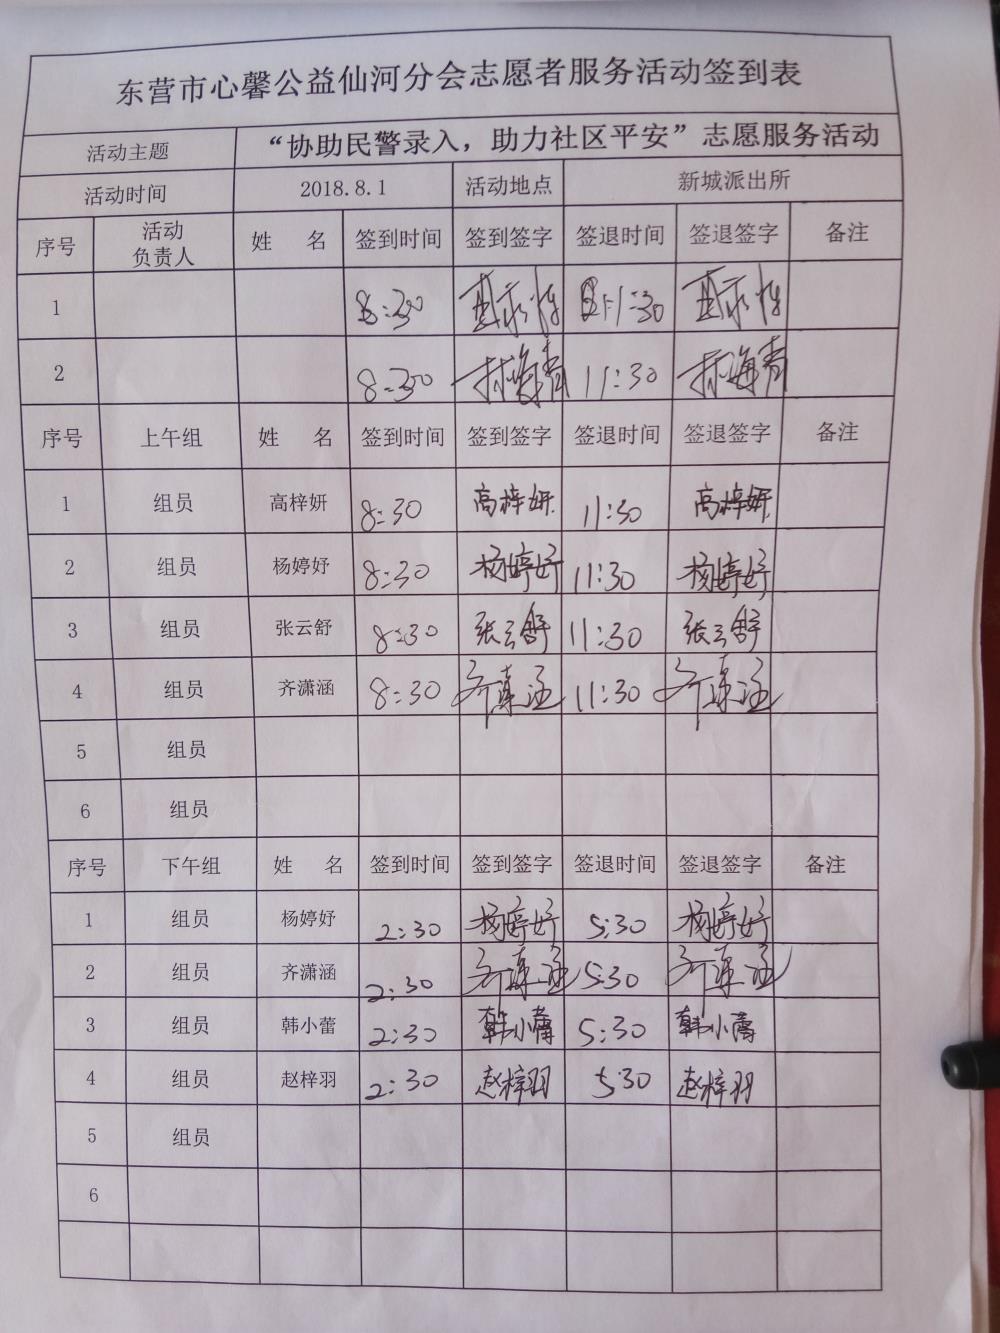 东营市心馨公益仙河分会志愿者服务活动签到表
活动主题 “协助民警录入，助力社区平安”志愿服务活动
活动时间 2018.8.1 活动地点 新城派出所
序号 活动负责人 姓 名 签到时间 签到签字 签退时间 签退签字 备注
1 8:30 11:30
2 8:30 林海青 11:30 林海青
序号 上午组 姓 名 签到时间 签到签字 签退时间 签退签字 备注
1 组员 高梓妍 8:30 高梓妍 11:30 高梓妍
2 组员 杨婷妤 8:30 杨婷妤 11:30 杨婷妤
3 组员 张云舒 8:30 张云舒 11:30 张云舒
4 组员 齐潇涵 8:30 齐潇涵 11:30 齐潇涵
5 组员
6 组员
序号 下午组 姓 名 签到时间 签到签字 签退时间 签退签字 备注
1 组员 杨婷妤 2:30 杨婷妤 5:30 杨婷妤
2 组员 齐潇涵 2:30 齐潇涵 5:30 齐潇涵
3 组员 韩小蕾 2:30 韩小蕾 5:30 韩小蕾
4 组员 赵梓羽 2:30 赵梓羽 5:30 赵梓羽
5 组员
6